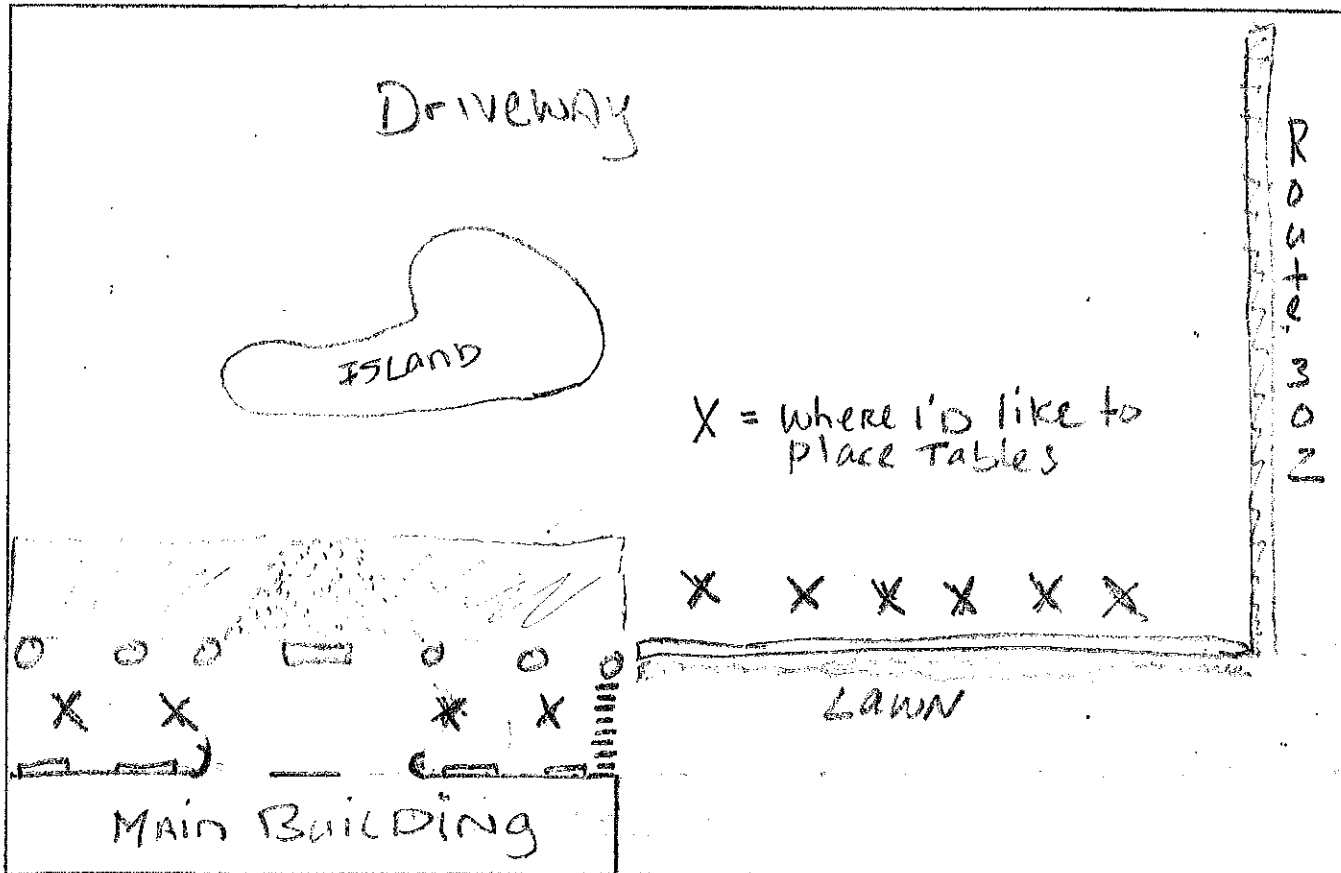 Driveway
Route 302
ISLAND
X = where I'D like to
place Tables
X X X X X X
X X X X
LAWN
MAIN BUILDING